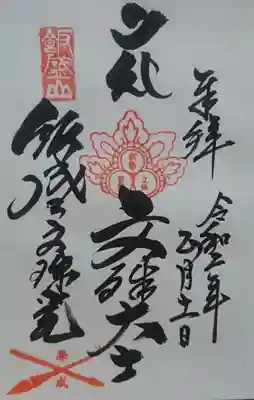 奉拝
令和二年
月十一日
文殊大士
飯盛山文殊堂
飯盛山
學成